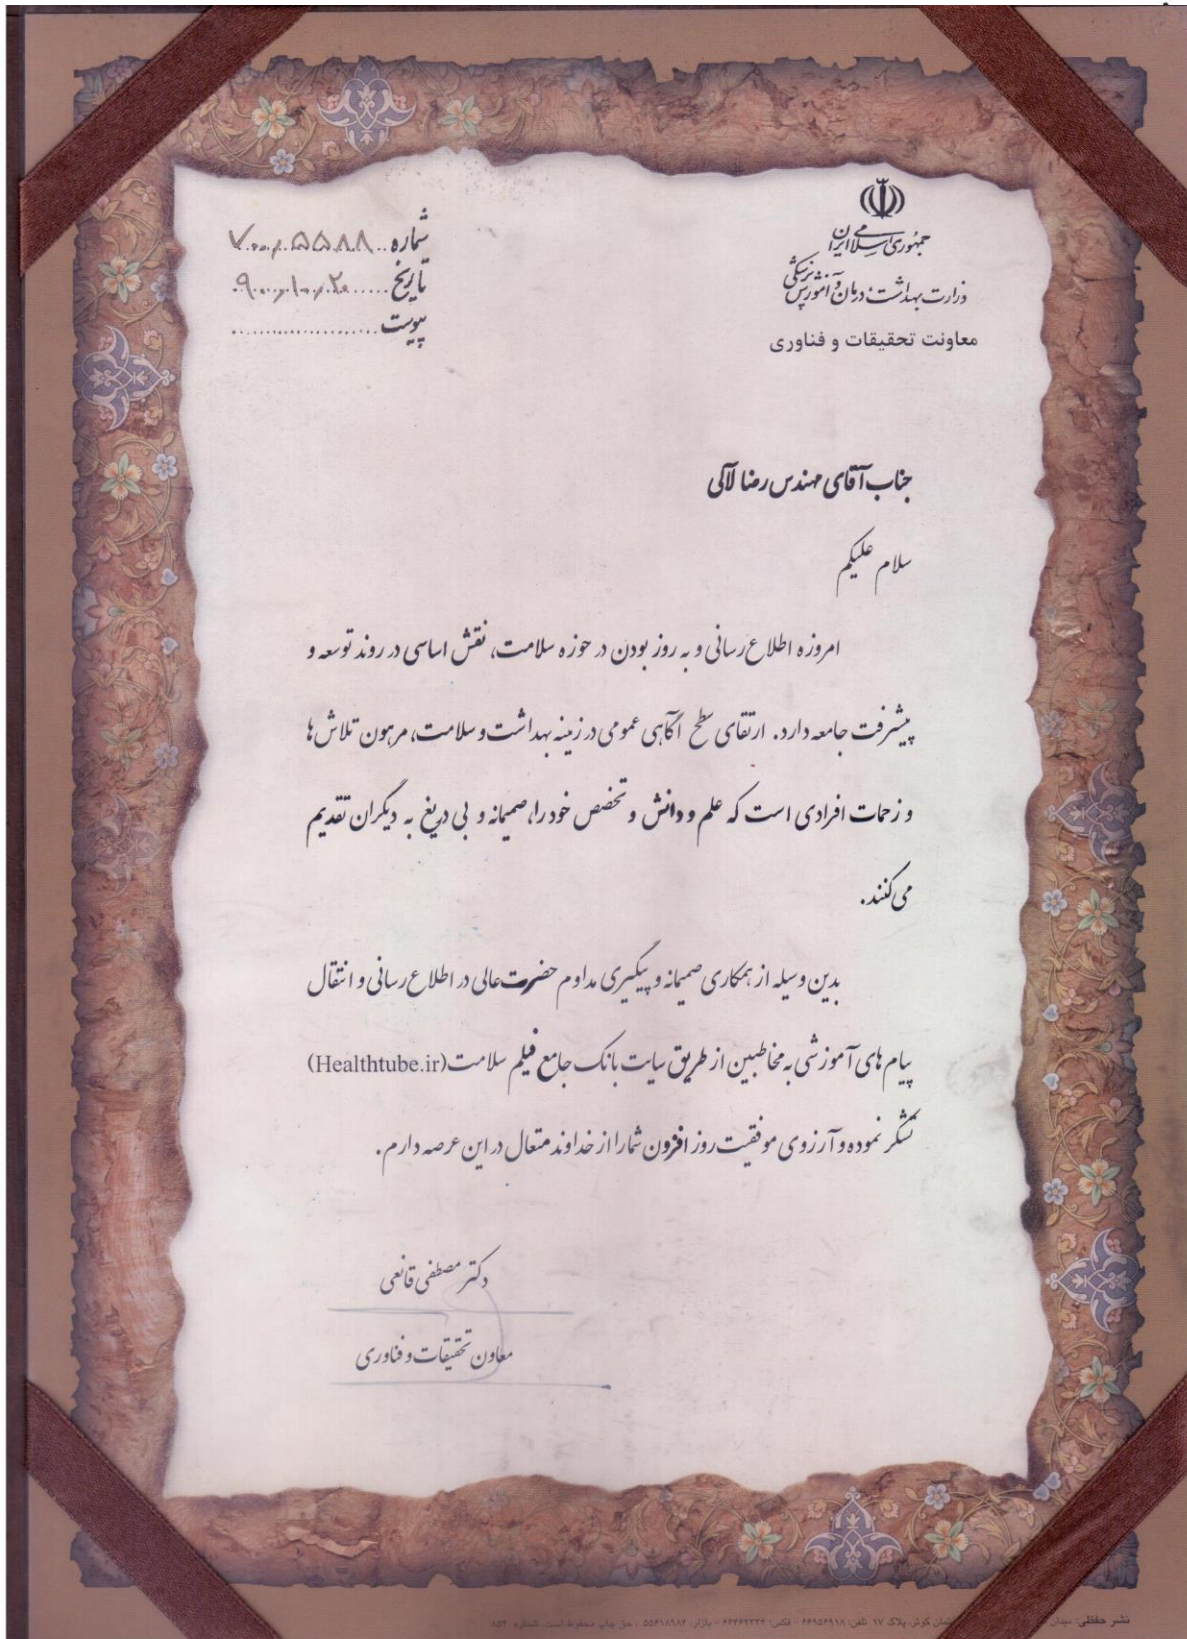 جمهوری اسلامی ایران
وزارت بهداشت، درمان و آموزش پزشکی
معاونت تحقیقات و فناوری
شماره ۷۰۰/۵۵۸۸
تاریخ ۹۰/۱۰/۲۰
پیوست
جناب آقای مهندس رضا لاکی
سلام علیکم
امروزه اطلاع رسانی و به روز بودن در حوزه سلامت، نقش اساسی در روند توسعه و
پیشرفت جامعه دارد. ارتقای سطح آگاهی عمومی در زمینه بهداشت و سلامت، مرهون تلاش ها
و زحمات افرادی است که علم و دانش و تخصص خود را، صمیمانه و بی دریغ به دیگران تقدیم
می کنند.
بدین وسیله از همکاری صمیمانه و پیگیری مداوم حضرت عالی در اطلاع رسانی و انتقال
پیام های آموزشی به مخاطبین از طریق سایت بانک جامع فیلم سلامت (Healthtube.ir)
تشکر نموده و آرزوی موفقیت روز افزون شما را از خداوند متعال در این عرصه دارم.
دکتر مصطفی قانعی
معاون تحقیقات و فناوری
نشر حفظی: میدان کوثر، پلاک ۱۷ تلفن: ۶۶۹۵۶۹۱۸ - فکس: - بازار: ۵۵۶۱۸۹۸۲ ، حق چاپ محفوظ است.